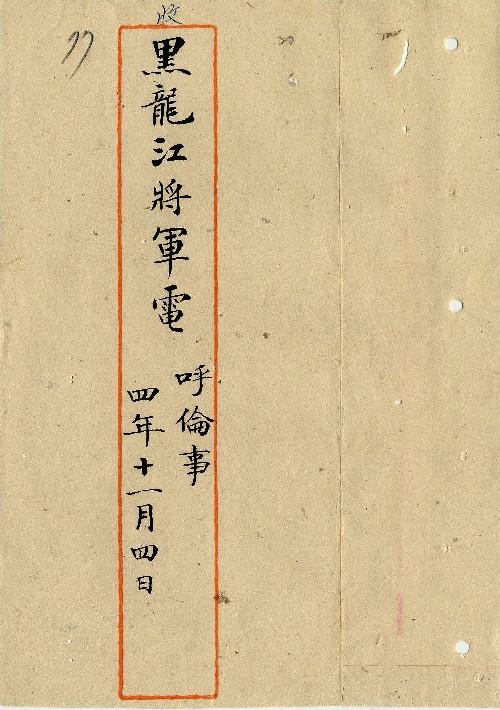 收
黑龍江將軍電
呼倫事
四年十一月四日